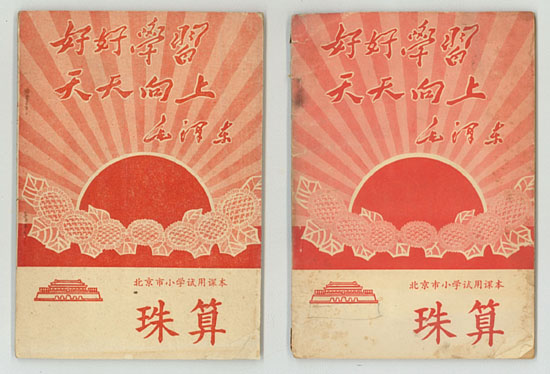 好好學習
天天向上
毛泽东
北京市小学试用课本
珠算
好好學習
天天向上
毛泽东
北京市小学试用课本
珠算